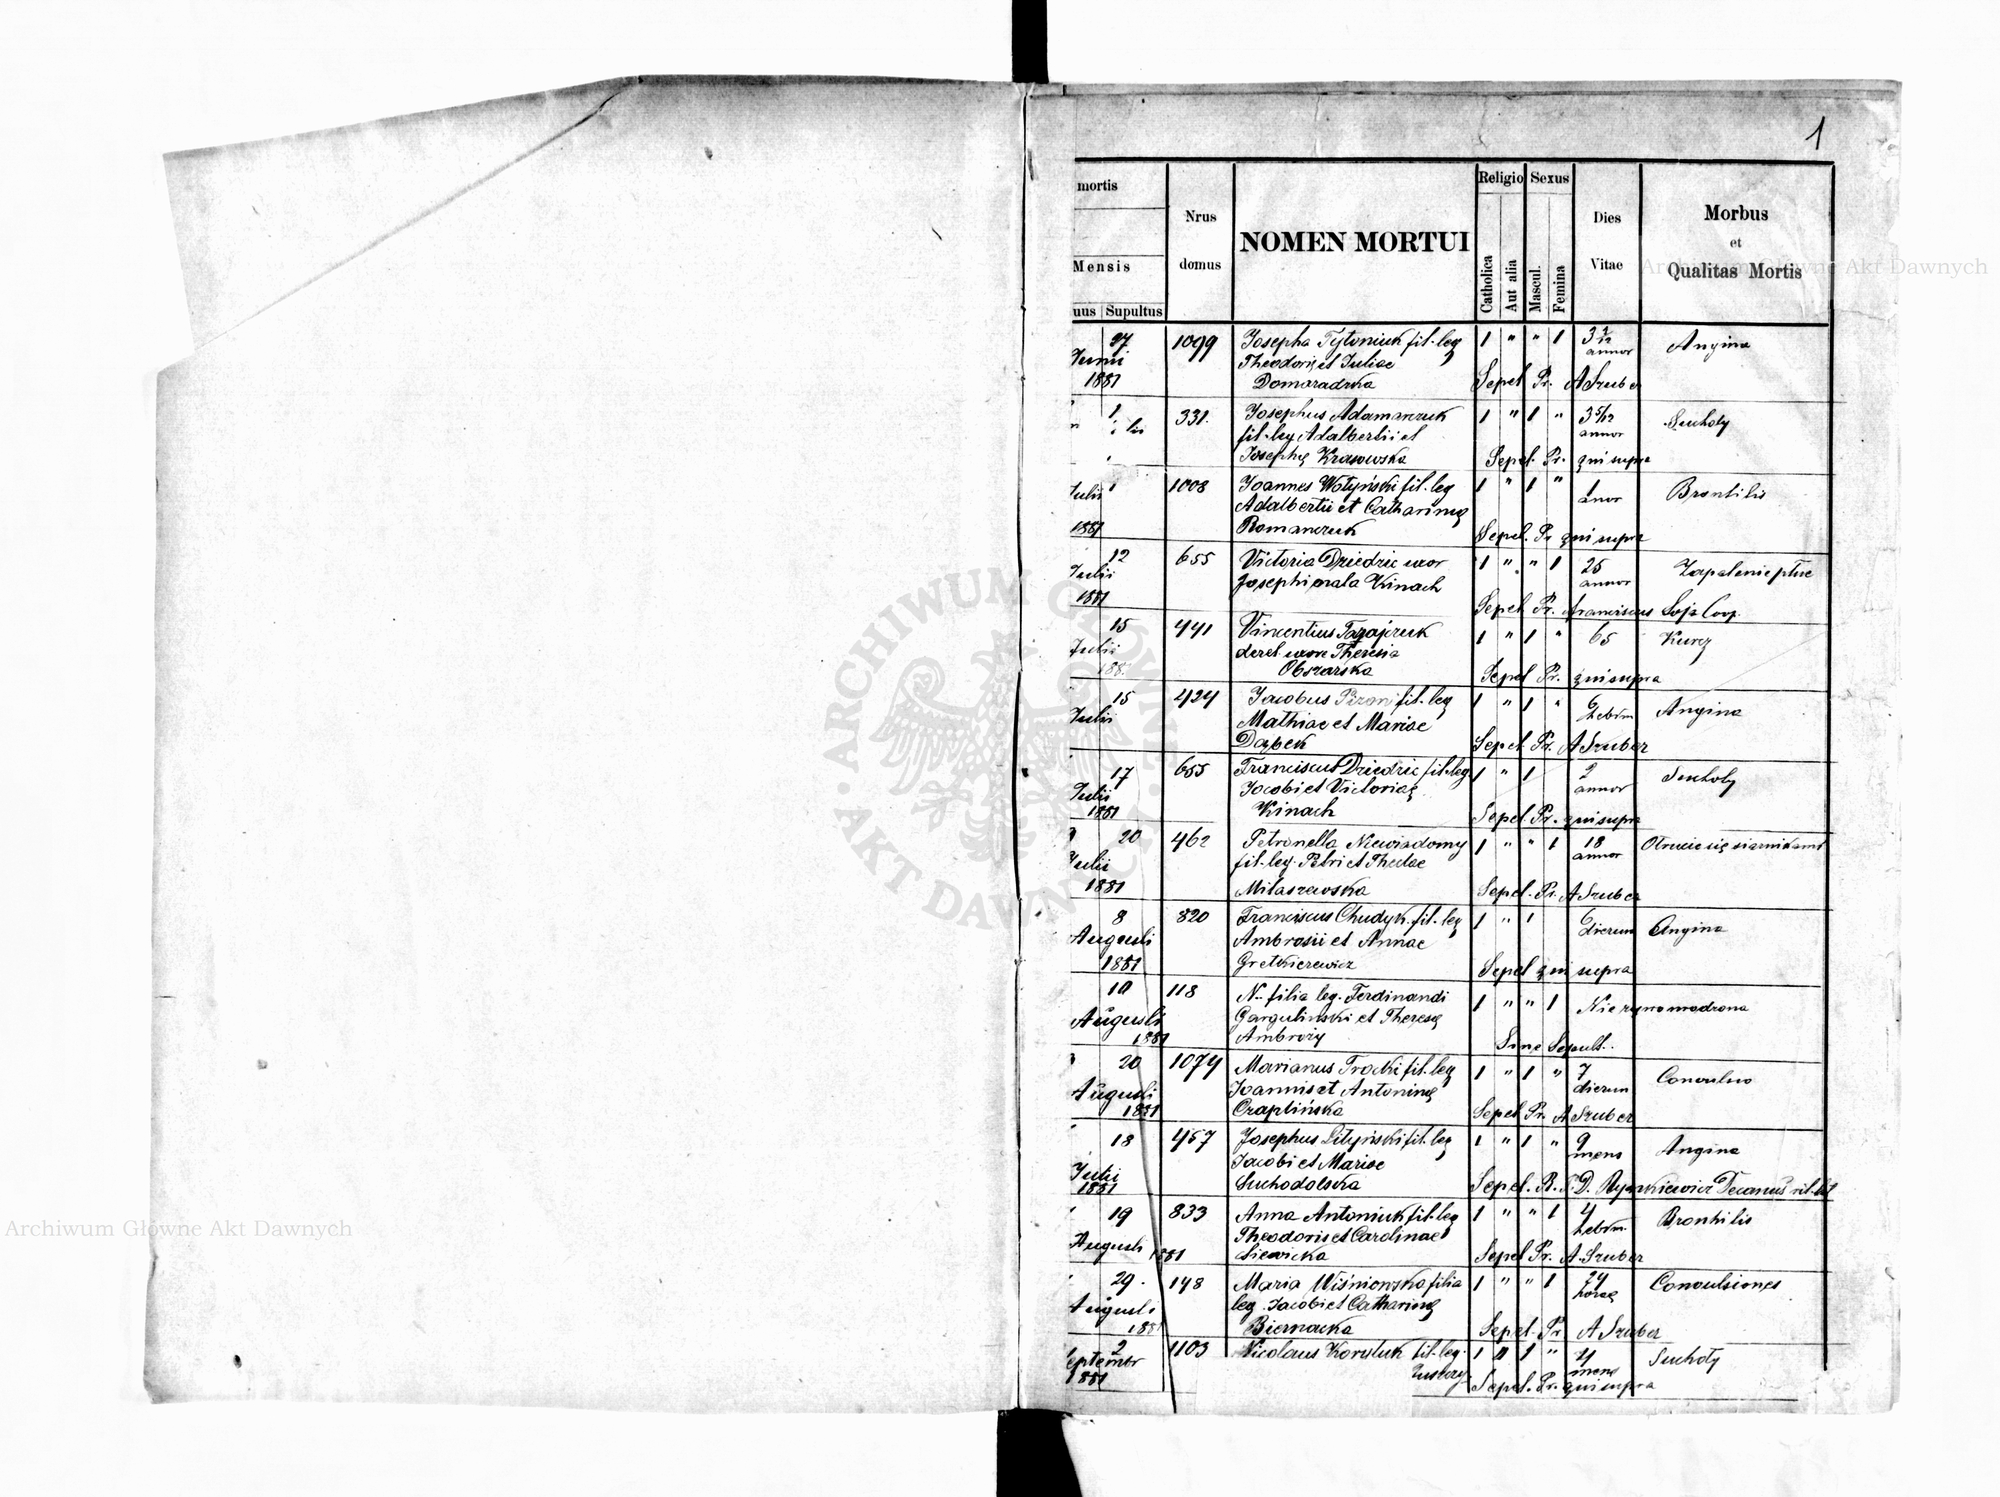 1
mortis
Mensis
uus Supultus
Nrus domus
NOMEN MORTUI
Religio Sexus
Catholica
Aut alia
Mascul.
Femina
Dies Vitae
Morbus
et
Qualitas Mortis
27 1099 Josepha Tytoniuk fil. leg 1 " " 1 3 annor Angina
Junii Theodori et Juliae
1881 Domaradzka Sepel Pr. A Szuber
1 331. Josephus Adamarczuk 1 " 1 " 3 5/12 annor Suchoty
fil. leg Adalbertii et
Josephę Krasowska Sepel. Pr. qui supra
Julii 1 1008 Joannes Wołyński fil. leg 1 " 1 " 1 anor Bronhilis
Adalbertii et Catharinę
1881 Romanczuk Sepel. Pr qui supra
12 655 Victoria Dziedzic uxor 1 " " 1 25 annor Zapalenie płuc
Julii Josephi nata Kinach
1881 Sepel Pr. Franciscus Soja Coop.
15 441 Vincentius 1 " 1 " 65 Kurcz
Julii derel. uxore Theresia
188 Obszarska Sepel Pr. qui supra
15 424 Jacobus fil. leg 1 " 1 " 6 hebdm Angina
Julii Mathiae et Mariae
Sepel. Pr. A Szuber
17 655 Franciscus Dziedzic fil. leg 1 " 1 2 annor Suchoty
Julii Jacobi et Victoriaę
1881 Kinach Sepel Pr. qui supra
20 462 Petronella Niewiadomy 1 " " 1 18 annor Otrucie się siarnikami
Julii fil. leg. Petri et Theclae
1881 Milaszewska Sepel. Pr. A Szuber
8 820 Franciscus Chudyk. fil. leg 1 " 1 6 dierum Angina
Augusti Ambrosii et Annae
1881 Gretkierewicz Sepel qui supra
10 118 N. filia leg. Ferdinandi 1 " " 1 Nie żywo urodzona
Augusti Gargulinski et Theresę
1881 Ambroży Sine Sepult.
20 1074 Marianus Trocki fil. leg 1 " 1 " 7 dierum Convulsio
Augusti Joannis et Antoninę
1881 Czaplińska Sepel Pr. A Szuber
18 457 Josephus Lityński fil. leg 1 " 1 " 9 mens Angina
Julii Jacobi et Mariae
1881 Suchodolska Sepel. R. P. D. Rynkiewicz Decanus rit. lat
19 833 Anna Antoniuk fil. leg 1 " " 1 4 hebdm. Bronhilis
Augusti Theodoris et Carolinae
1881 Siewicka Sepel Pr. A. Szuber
29. 148 Maria Wiśniowska filia 1 " " 1 24 horae Convulsiones
Augusti leg. Jacobi et Catharinę
1881 Biernacka Sepel. Pr A Szuber
2 1103 Nicolaus Koryluk fil. leg. 1 " 1 " 4 mens Suchoty
eptembr
1881 Sepel. Pr. qui supra
Archiwum Główne Akt Dawnych
Archiwum Główne Akt Dawnych
ARCHIWUM GŁÓWNE AKT DAWNYCH